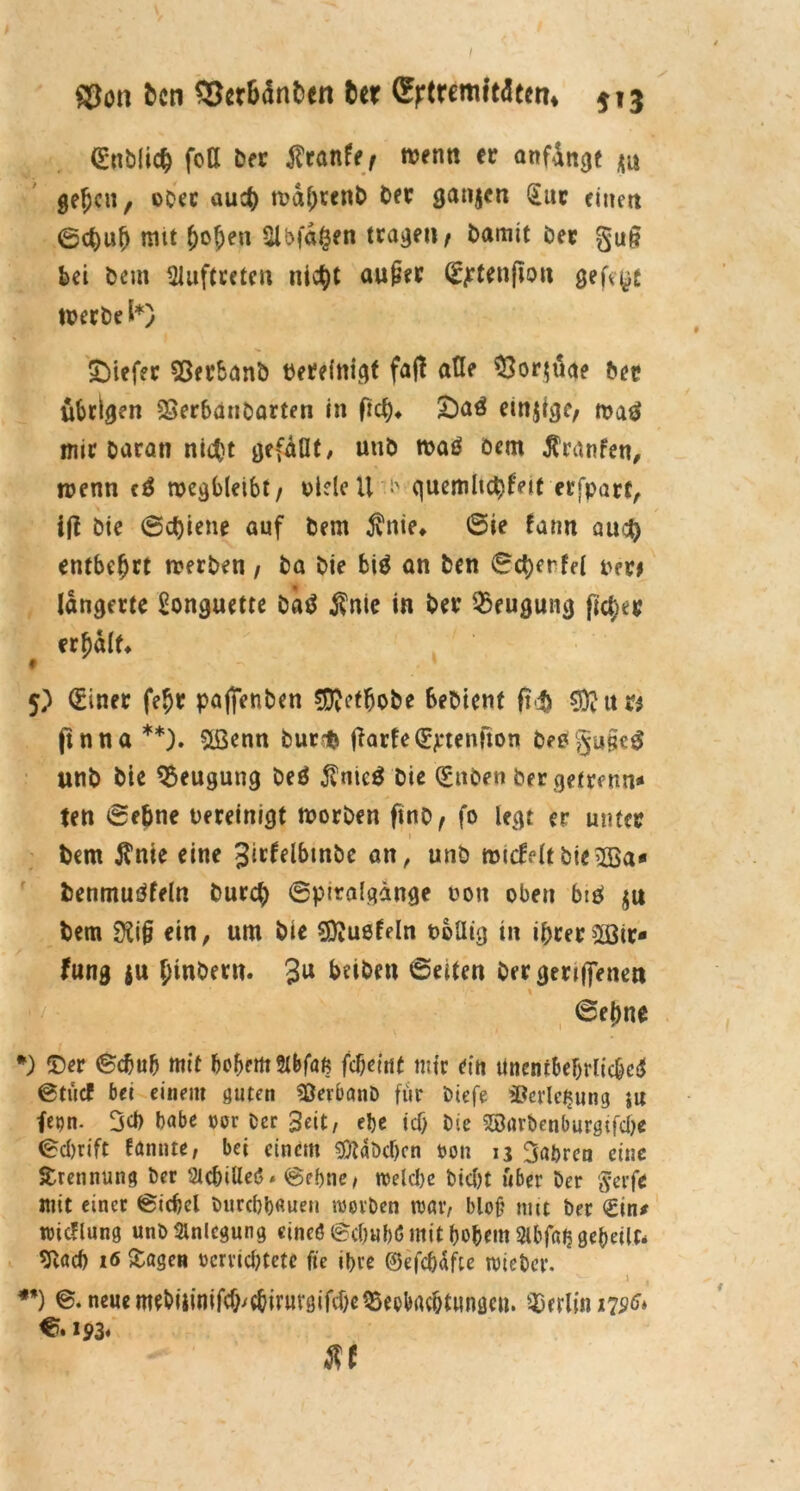 Von den Verbänden der Extremitäten. 513
Endlich soll der Kranke, wenn er anfängt zu
gehen, oder auch während der ganzen Cur einen
Schuh mit hohen Absätzen tragen, damit der Fuß
bei dem Auftreten nicht außer Extension gesetzt
werde!*)
Dieser Verband vereinigt fast alle Vorzüge der
übrigen Verbandarten in sich. Das einzige, was
mir daran nicht gefällt, und was dem Kranken,
wenn es wegbleibt, viele Unbequemlichkeit erspart,
ist die Schiene auf dem Knie. Sie kann auch
entbehrt werden, da die bis an den Schenkel ver-
längerte Longuette das Knie in der Beugung sicher
erhält.
5) Einer sehr passenden Methode bedient sich Mur-
sinna **). Wenn durch starke Extension des Fußes
und die Beugung des Knies die Enden der getrenn-
ten Sehne vereinigt worden sind, so legt er unter
dem Knie eine Zirkelbinde an, und wickelt die Wa-
denmuskeln durch Spiralgänge von oben bis zu
dem Riß ein, um die Muskeln völlig in ihrer Wir-
kung zu hindern. Zu beiden Seiten der gerissenen
Sehne
*) Der Schuh mit hohem Absatz scheint mir ein unentbehrliches
Stück bei einem guten Verband für diese Verletzung zu
seyn. Ich habe vor der Zeit, ehe ich die Wardenburgische
Schrift kannte, bei einem Mädchen von 13 Jahren eine
Trennung der Achilles-Sehne, welche dicht über der Ferse
mit einer Sichel durchhauen worden war, bloß mit der Ein-
wicklung und Anlegung eines Schuhs mit hohem Absatz geheilt.
Nach 16 Tagen verrichtete sie ihre Geschäfte wieder.
**) S. neue medizinisch-chirurgische Beobachtungen. Berlin 1796.
S. 193.
Kk